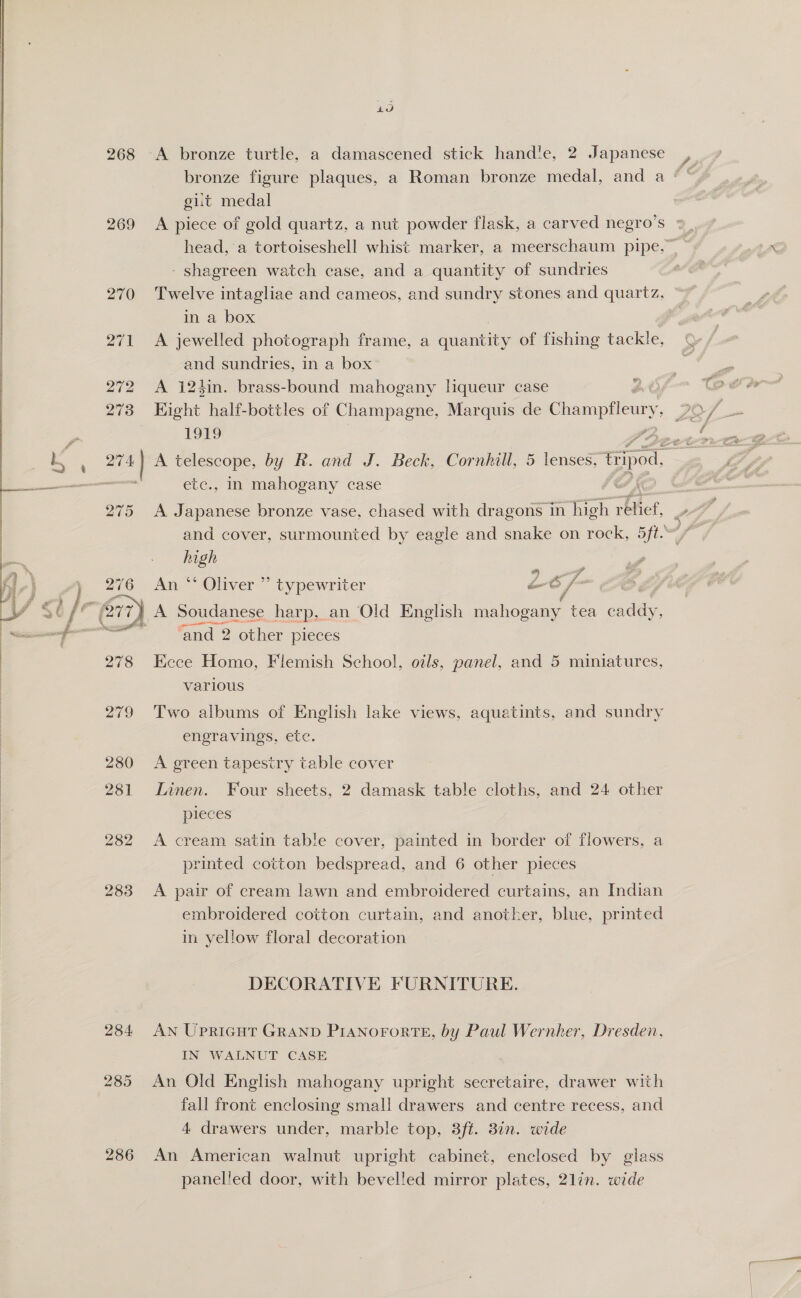 268 A bronze turtle, a damascened stick handle, 2 Japanese
bronze figure plaques, a Roman bronze medal, and a
gilt medal
269 A piece of gold quartz, a nut powder flask, a carved negro's
head, a tortoiseshell whist marker, a meerschaum pipe,
shagreen watch case, and a quantity of sundries
270 Twelve intagliae and cameos, and sundry stones and quartz,
in a box
271 A jewelled photograph frame, a quantity of fishing tackle,
and sundries, in a box
272 A 12½in. brass-bound mahogany liqueur case
273 Eight half-bottles of Champagne, Marquis de Champfleury,
1919
274 A telescope, by R. and J. Beck, Cornhill, 5 lenses, tripod,
etc., in mahogany case
275 A Japanese bronze vase, chased with dragons in high relief,
and cover, surmounted by eagle and snake on rock, 5ft.
high
276 An “ Oliver ” typewriter
277 A Soudanese harp, an Old English mahogany tea caddy,
and 2 other pieces
278 Ecce Homo, Flemish School, oils, panel, and 5 miniatures,
various
279 Two albums of English lake views, aquatints, and sundry
engravings, etc.
280 A green tapestry table cover
281 Linen. Four sheets, 2 damask table cloths, and 24 other
pieces
282 A cream satin table cover, painted in border of flowers, a
printed cotton bedspread, and 6 other pieces
283 A pair of cream lawn and embroidered curtains, an Indian
embroidered cotton curtain, and another, blue, printed
in yellow floral decoration
DECORATIVE FURNITURE.
284 AN UPRIGHT GRAND PIANOFORTE, by Paul Wernher, Dresden,
IN WALNUT CASE
285 An Old English mahogany upright secretaire, drawer with
fall front enclosing small drawers and centre recess, and
4 drawers under, marble top, 3ft. 3in. wide
286 An American walnut upright cabinet, enclosed by glass
panelled door, with bevelled mirror plates, 21in. wide